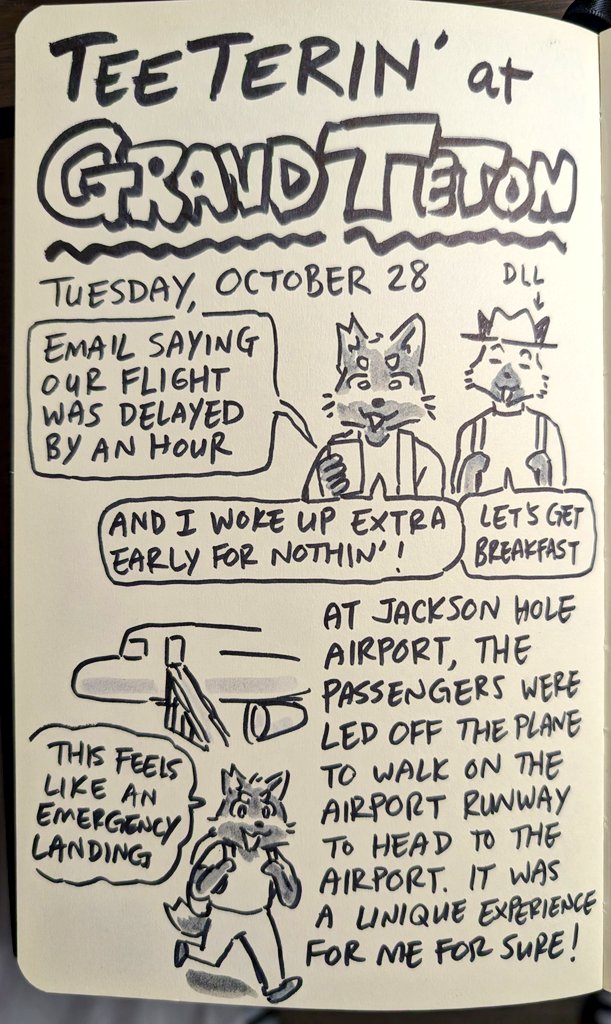 TEETERIN' at
GRAND TETON
TUESDAY, OCTOBER 28
DLL
EMAIL SAYING
OUR FLIGHT
WAS DELAYED
BY AN HOUR
AND I WOKE UP EXTRA
EARLY FOR NOTHIN'!
LET'S GET
BREAKFAST
AT JACKSON HOLE
AIRPORT, THE
PASSENGERS WERE
LED OFF THE PLANE
TO WALK ON THE
AIRPORT RUNWAY
TO HEAD TO THE
AIRPORT. IT WAS
A UNIQUE EXPERIENCE
FOR ME FOR SURE!
THIS FEELS
LIKE AN
EMERGENCY
LANDING